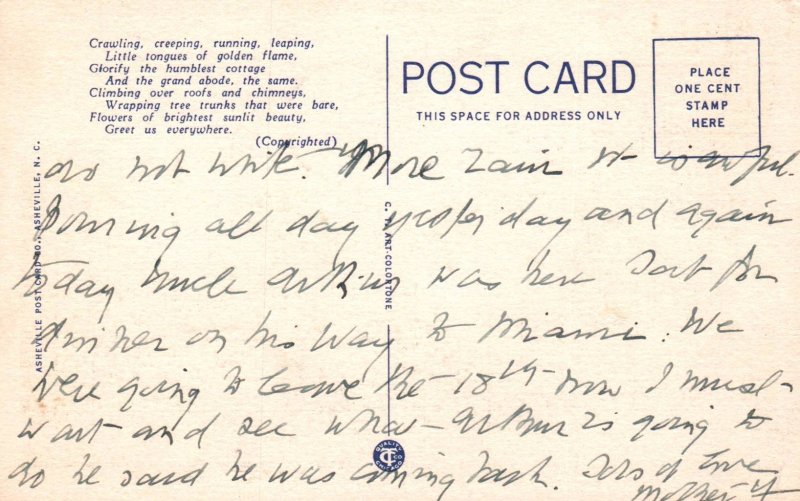 Crawling, creeping, running, leaping,
Little tongues of golden flame,
Glorify the humblest cottage
And the grand abode, the same.
Climbing over roofs and chimneys,
Wrapping tree trunks that were bare,
Flowers of brightest sunlit beauty,
Greet us everywhere.
(Copyrighted)
POST CARD
THIS SPACE FOR ADDRESS ONLY
PLACE
ONE CENT
STAMP
HERE
ASHEVILLE POST CARD CO., ASHEVILLE, N. C.
C. T. ART-COLORTONE
do not write. More rain it is awful.
Pouring all day yesterday and again
today Uncle Arthur was here Sat for
dinner on his way to Miami. We
were going to leave the 18th now I must
wait and see what Arthur is going to
do he said he was coming back. Lots of love
Mother
QUALITY
CT
CHICAGO